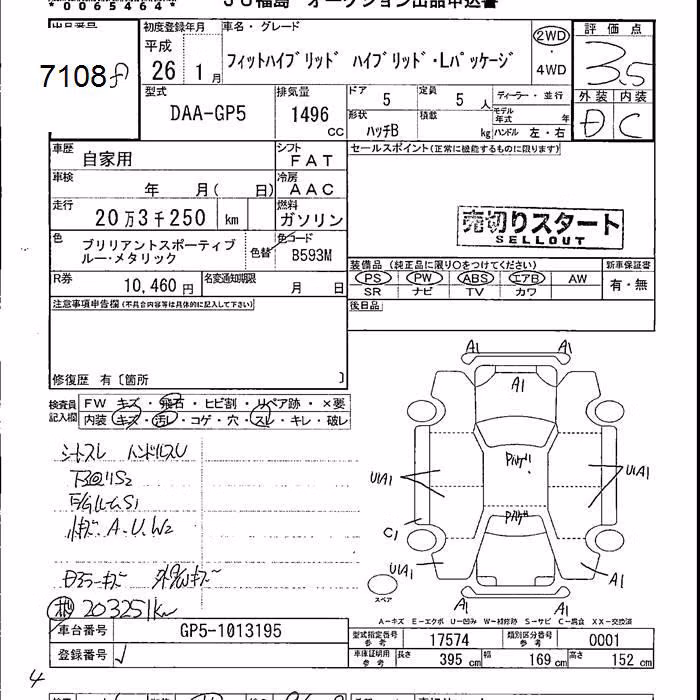 *0065464*
JU福島 オークション出品申込書
出品番号
7108
初度登録年月
平成
26年 1月
車名・グレード
フィットハイブリッド ハイブリッド・Lパッケージ
2WD
・
4WD
評価点
3.5
型式
DAA-GP5
排気量
1496
cc
ドア
5
定員
5人
ディーラー・並行
モデル年式 年
形状
ハッチB
積載
kg
ハンドル 左・右
外装 内装
D C
車歴
自家用
シフト
FAT
セールスポイント(正常に機能するものに限ります)
車検
年 月( 日)
冷房
AAC
走行
20万3千250 km
燃料
ガソリン
売切りスタート
SELLOUT
色
ブリリアントスポーティブ
ルー・メタリック
色替
色コード
B593M
装備品(純正品に限り○をつけてください)
PS PW ABS エアB AW
SR ナビ TV カワ
新車保証書
有・無
R券
10,460円
名変通知期限
月 日
後日品
注意事項申告欄(不具合内容等は具体的に記入して下さい)
修復歴 有〔箇所 〕
検査員
記入欄
FW キズ・飛石・ヒビ割・リペア跡・×要
内装 キズ・汚レ・コゲ・穴・スレ・キレ・破レ
シートスレ ハンドルスレ
下回りS2
E/GルームS1
小キズ.A.U.W2
203251km
A1 A1
A1
UIA1
UIA1
C1
UIA1
A1
A1 A1
スペア
A-キズ E-エクボ U-凹み W-補修跡 S-サビ C-腐食 XX-交換済
車台番号
GP5-1013195
登録番号
型式指定番号
参考
17574
類別区分番号
参考
0001
車庫証明用
参考
長さ
395 cm
幅
169 cm
高さ
152 cm
4